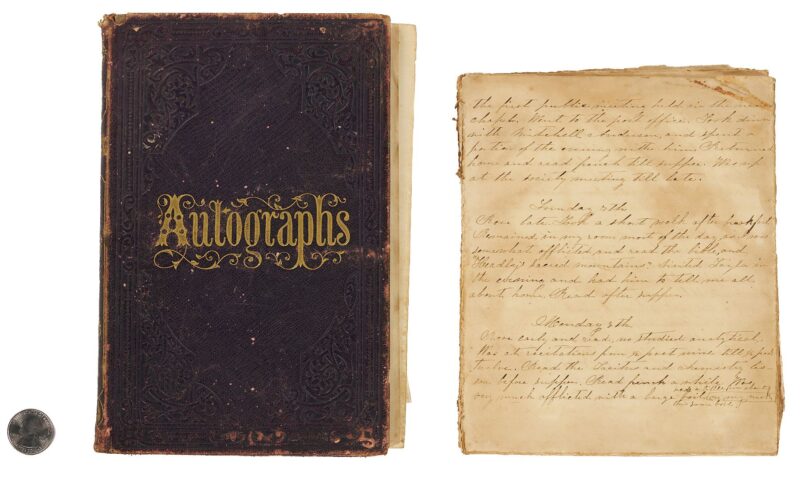 Autographs
the first public meeting held in the new
chapel. Went to the post office. Took
with Mitchell &amp; Anderson, and spent a
portion of the evening with him. Returned
home and read French till supper. Was up
at the society meeting till late.
Sunday 7th
Rose late. Took a short walk after breakfast
Remained in my room most of the day, and was
somewhat afflicted and read the bible, and
"Headley's sacred mountains" visited in
the evening and had him to tell me all
about home. Read after supper.
Monday 8th
Rose early and read, or studied analytical.
Was at recitations from past nine till past
twelve. Read the and chemistry
before supper. Read French a while. Was
very much afflicted with a large on my neck